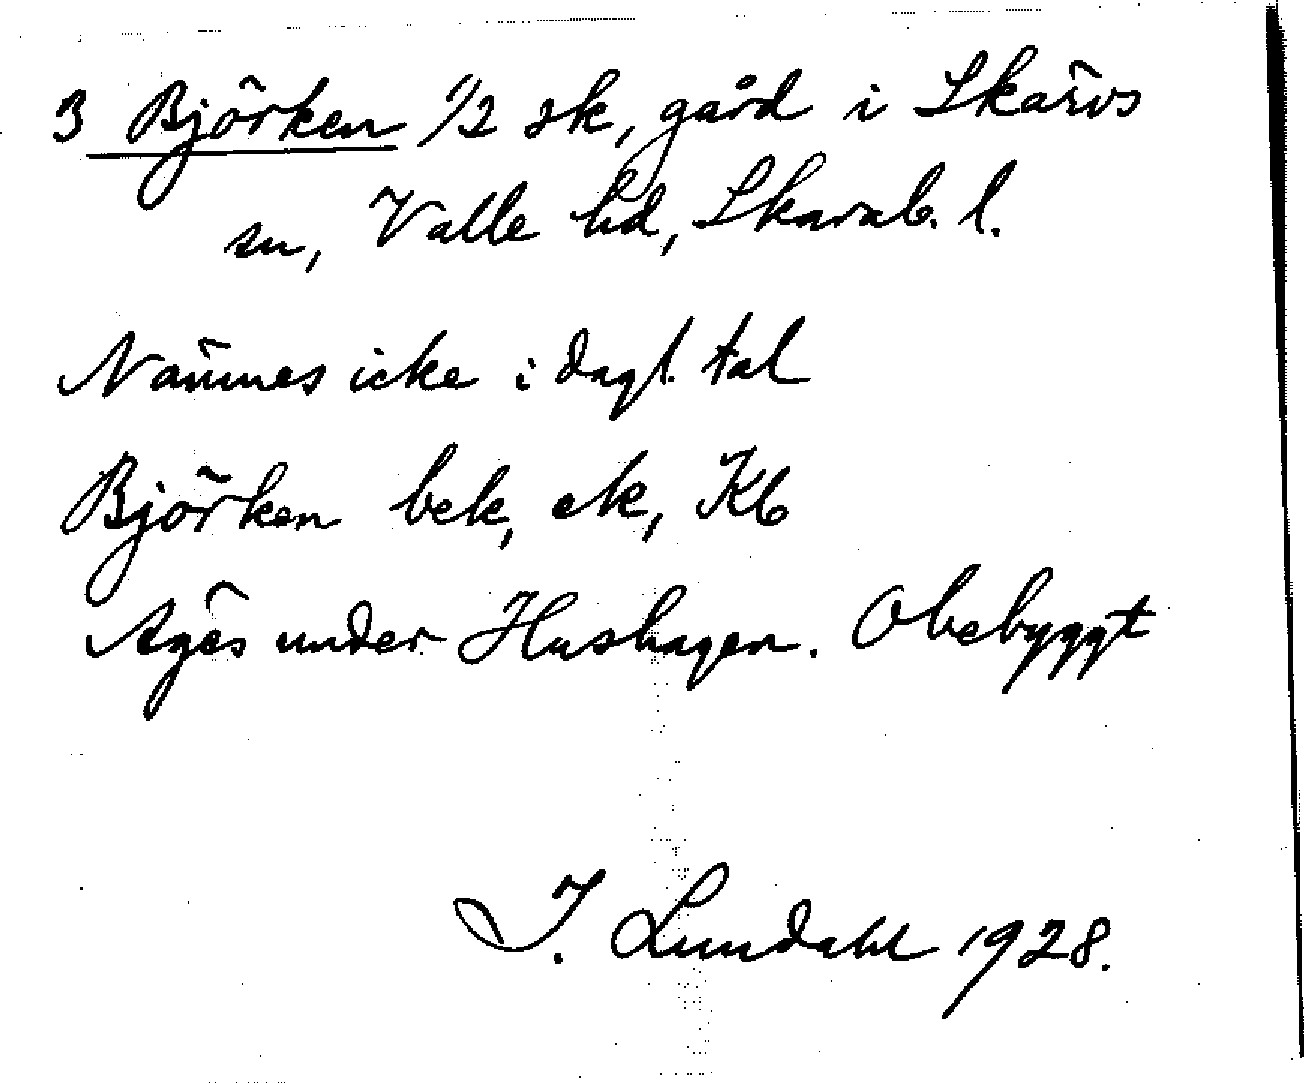 3 Björken 1/2 sk, gård i Skärvs
sn, Valle hd, Skarab. l.
Nämnes icke i dagl. tal
Björken bek, ek, Kb
Äges under Hushagen. Obebyggt
I. Lundahl 1928.